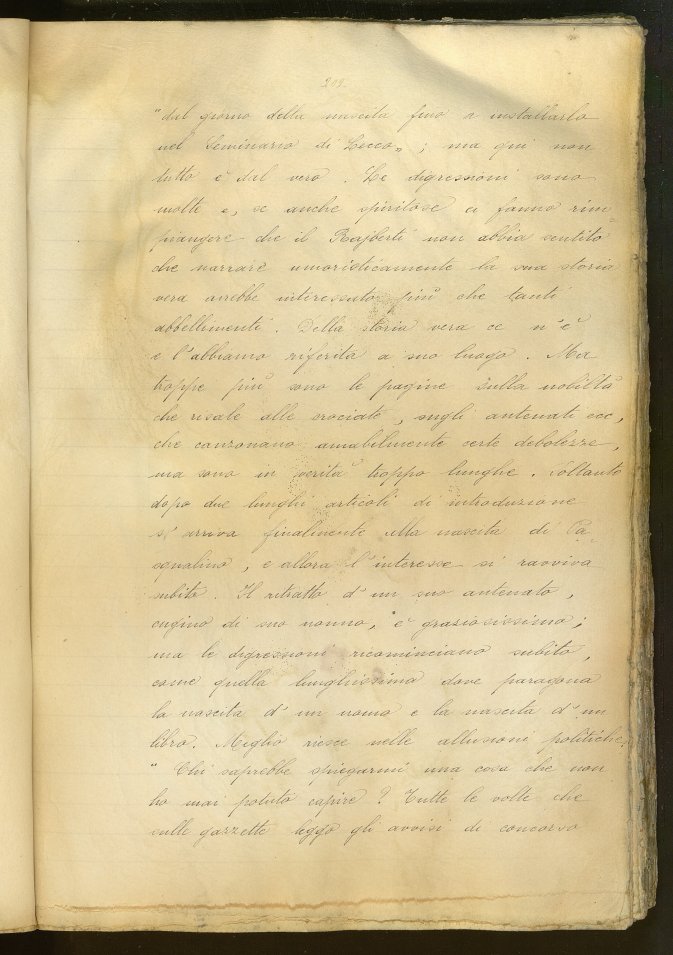 "dal giorno della nascita fino a installarlo
nel Seminario di Lecco„; ma qui non
tutto è dal vero. Le digressioni sono
molte e, se anche spiritose ci fanno rim-
piangere che il Rajberti non abbia sentito
che narrare umoristicamente la sua storia
vera avrebbe interessato più che tanti
abbellimenti. Della storia vera ce n'è
e l'abbiamo riferita a suo luogo. Ma
troppe più sono le pagine sulla nobiltà
che risale alle crociate, sugli antenati ecc,
che canzonano amabilmente certe debolezze,
ma sono in verità troppo lunghe. Soltanto
dopo due lunghi articoli di introduzione
si arriva finalmente alla nascita di Pa-
squalino, e allora l'interesse si ravviva
subito. Il ritratto d'un suo antenato,
cugino di suo nonno, è graziosissimo;
ma le digressioni ricominciano subito,
come quella lunghissima dove paragona
la nascita d'un uomo e la nascita d'un
libro. Meglio riesce nelle allusioni politiche.
" Chi saprebbe spiegarmi una cosa che non
ho mai potuto capire? Tutte le volte che
sulle gazzette leggo gli avvisi di concorso